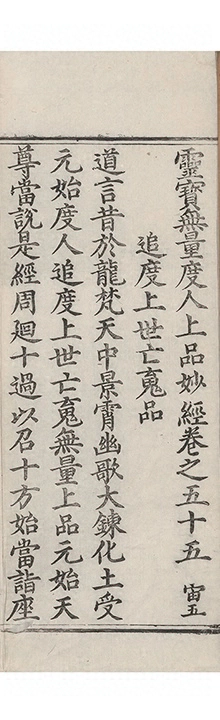 靈寶無量度人上品妙經卷之五十五 宙五
追度上世亡䰟品
道言昔於龍梵天中景霄幽歌大鍊化土受
元始度人追度上世亡䰟無量上品元始天
尊當說是經周廻十過以召十方始當詣座